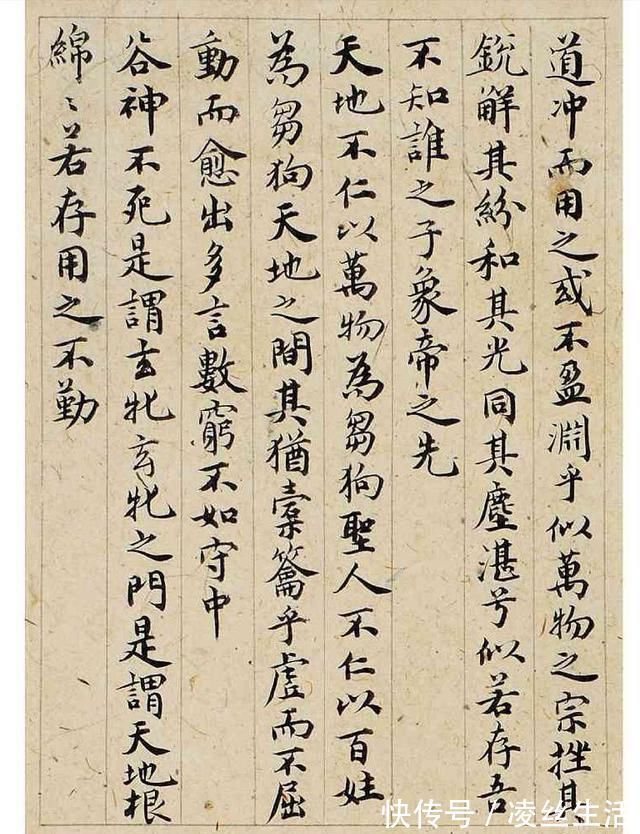 道冲而用之或不盈淵乎似萬物之宗挫其
銳解其紛和其光同其塵湛兮似若存吾
不知誰之子象帝之先
天地不仁以萬物為芻狗聖人不仁以百姓
為芻狗天地之間其猶橐籥乎虛而不屈
動而愈出多言數窮不如守中
谷神不死是謂玄牝玄牝之門是謂天地根
綿〻若存用之不勤
快传号/凌丝生活